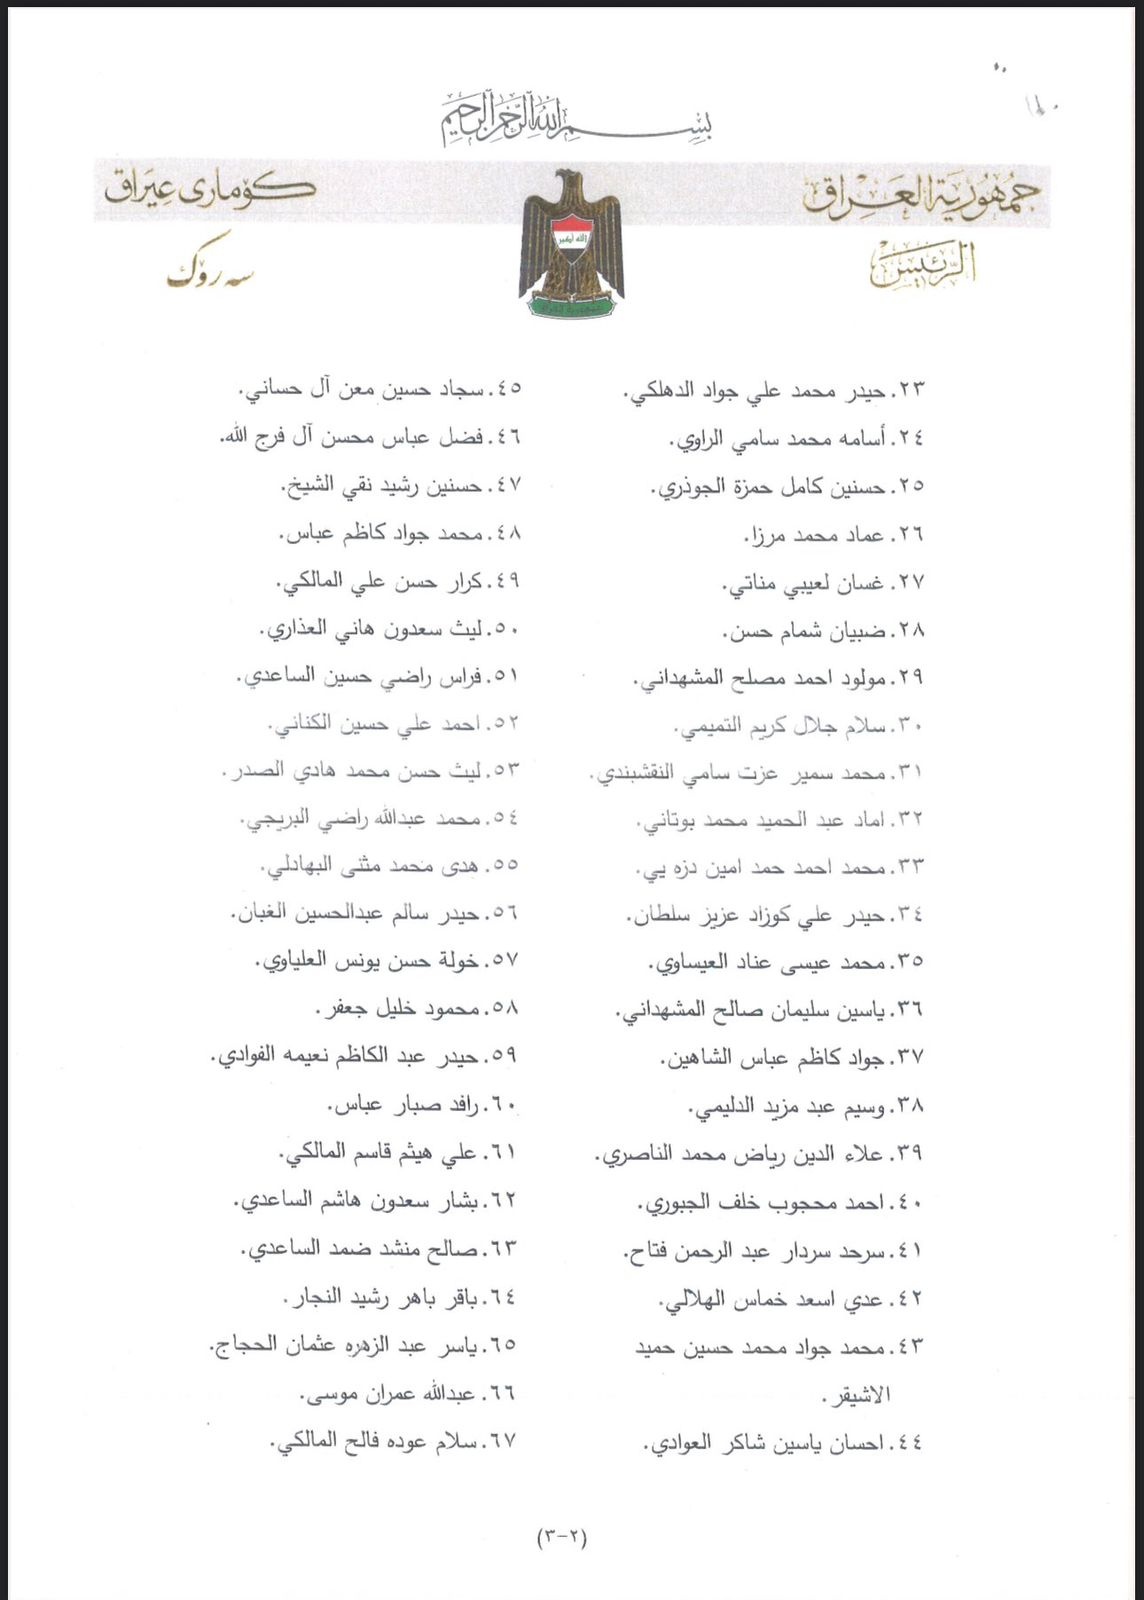 بسم الله الرحمن الرحيم
جمهورية العراق
كۆماری عێراق
الرئيس
سەرۆك
الله أكبر
٢٣. حيدر محمد علي جواد الدهلكي.
٢٤. أسامه محمد سامي الراوي.
٢٥. حسنين كامل حمزة الجوذري.
٢٦. عماد محمد مرزا.
٢٧. غسان لعيبي مناتي.
٢٨. ضبيان شمام حسن.
٢٩. مولود احمد مصلح المشهداني.
٣٠. سلام جلال كريم التميمي.
٣١. محمد سمير عزت سامي النقشبندي.
٣٢. اماد عبد الحميد محمد بوتاني.
٣٣. محمد احمد حمد امين دزه يي.
٣٤. حيدر علي كوزاد عزيز سلطان.
٣٥. محمد عيسى عناد العيساوي.
٣٦. ياسين سليمان صالح المشهداني.
٣٧. جواد كاظم عباس الشاهين.
٣٨. وسيم عبد مزيد الدليمي.
٣٩. علاء الدين رياض محمد الناصري.
٤٠. احمد محجوب خلف الجبوري.
٤١. سرحد سردار عبد الرحمن فتاح.
٤٢. عدي اسعد خماس الهلالي.
٤٣. محمد جواد محمد حسين حميد
الاشيقر.
٤٤. احسان ياسين شاكر العوادي.
٤٥. سجاد حسين معن آل حساني.
٤٦. فضل عباس محسن آل فرج الله.
٤٧. حسنين رشيد نقي الشيخ.
٤٨. محمد جواد كاظم عباس.
٤٩. كرار حسن علي المالكي.
٥٠. ليث سعدون هاني العذاري.
٥١. فراس راضي حسين الساعدي.
٥٢. احمد علي حسين الكناني.
٥٣. ليث حسن محمد هادي الصدر.
٥٤. محمد عبدالله راضي البريجي.
٥٥. هدى محمد مثنى البهادلي.
٥٦. حيدر سالم عبدالحسين الغبان.
٥٧. خولة حسن يونس العلياوي.
٥٨. محمود خليل جعفر.
٥٩. حيدر عبد الكاظم نعيمه الفوادي.
٦٠. رافد صبار عباس.
٦١. علي هيثم قاسم المالكي.
٦٢. بشار سعدون هاشم الساعدي.
٦٣. صالح منشد ضمد الساعدي.
٦٤. باقر باهر رشيد النجار.
٦٥. ياسر عبد الزهره عثمان الحجاج.
٦٦. عبدالله عمران موسى.
٦٧. سلام عوده فالح المالكي.
(٢-٣)